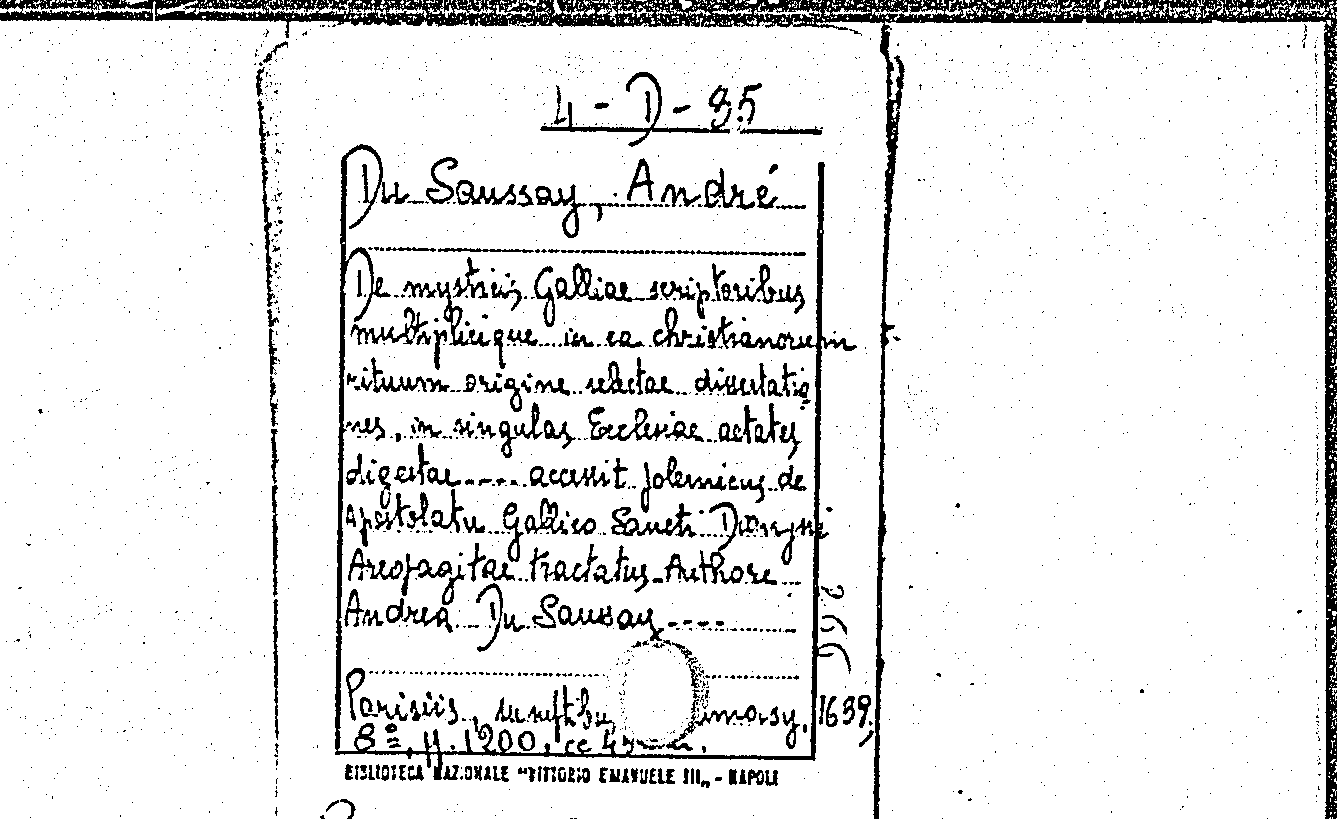 4 - D - 85
Du Saussay, André
De mysticis Galliae scriptoribus
multiplicique in ea christianorum
rituum origine selectae dissertatio
nes, in singulas Ecclesiae aetates
digestae ---- accessit polemicus de
Apostolatu Gallico Sancti Dionysii
Areopagitae tractatus. Authore
Andrea Du Saussay ----
Parisiis, 1639,
8º, pp. 1200, cc
BIBLIOTECA NAZIONALE "VITTORIO EMANUELE III„ - NAPOLI